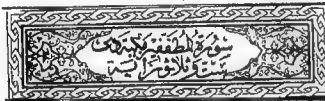 سورة المطففين مكية وهي
ست وثلاثون آية